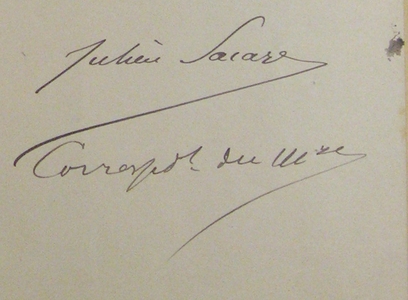 Julien Sacaze
Correspdt du Mre